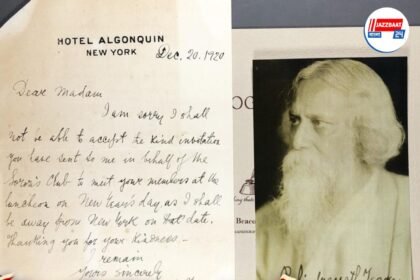 HOTEL ALGONQUIN
NEW YORK
Dec. 20. 1920
Dear Madam
I am sorry I shall
not be able to accept the kind invitation
you have sent to me in behalf of the
Sorosis Club to meet your members at the
luncheon on New Year's day, as I shall
be away from New York on that date.
Thanking you for your kindness –
I remain
Yours sincerely
JAZZBAAT
NEWS 24
OG
Beaco